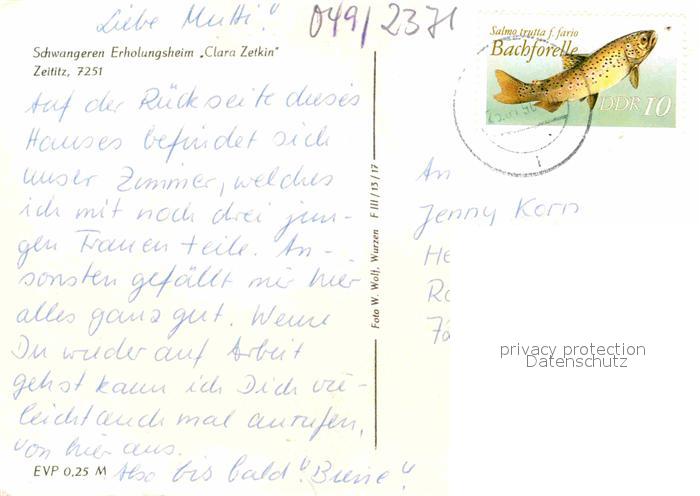 Liebe Mutti!
049/2371
Schwangeren Erholungsheim „Clara Zetkin“
Zeititz, 7251
Auf der Rückseite dieses
Hauses befindet sich
unser Zimmer, welches
ich mit noch drei jun-
gen Frauen teile. An-
sonsten gefällt mir hier
alles ganz gut. Wenn
Du wieder auf Arbeit
gehst kann ich Dich vie-
leicht auch mal anrufen,
von hier aus.
Also bis bald!
EVP 0,25 M
Foto W. Wolf, Wurzen F III/13/17
Salmo trutta f. fario
Bachforelle
DDR 10
An
Jenny Korn
He
Ro
privacy protection
Datenschutz